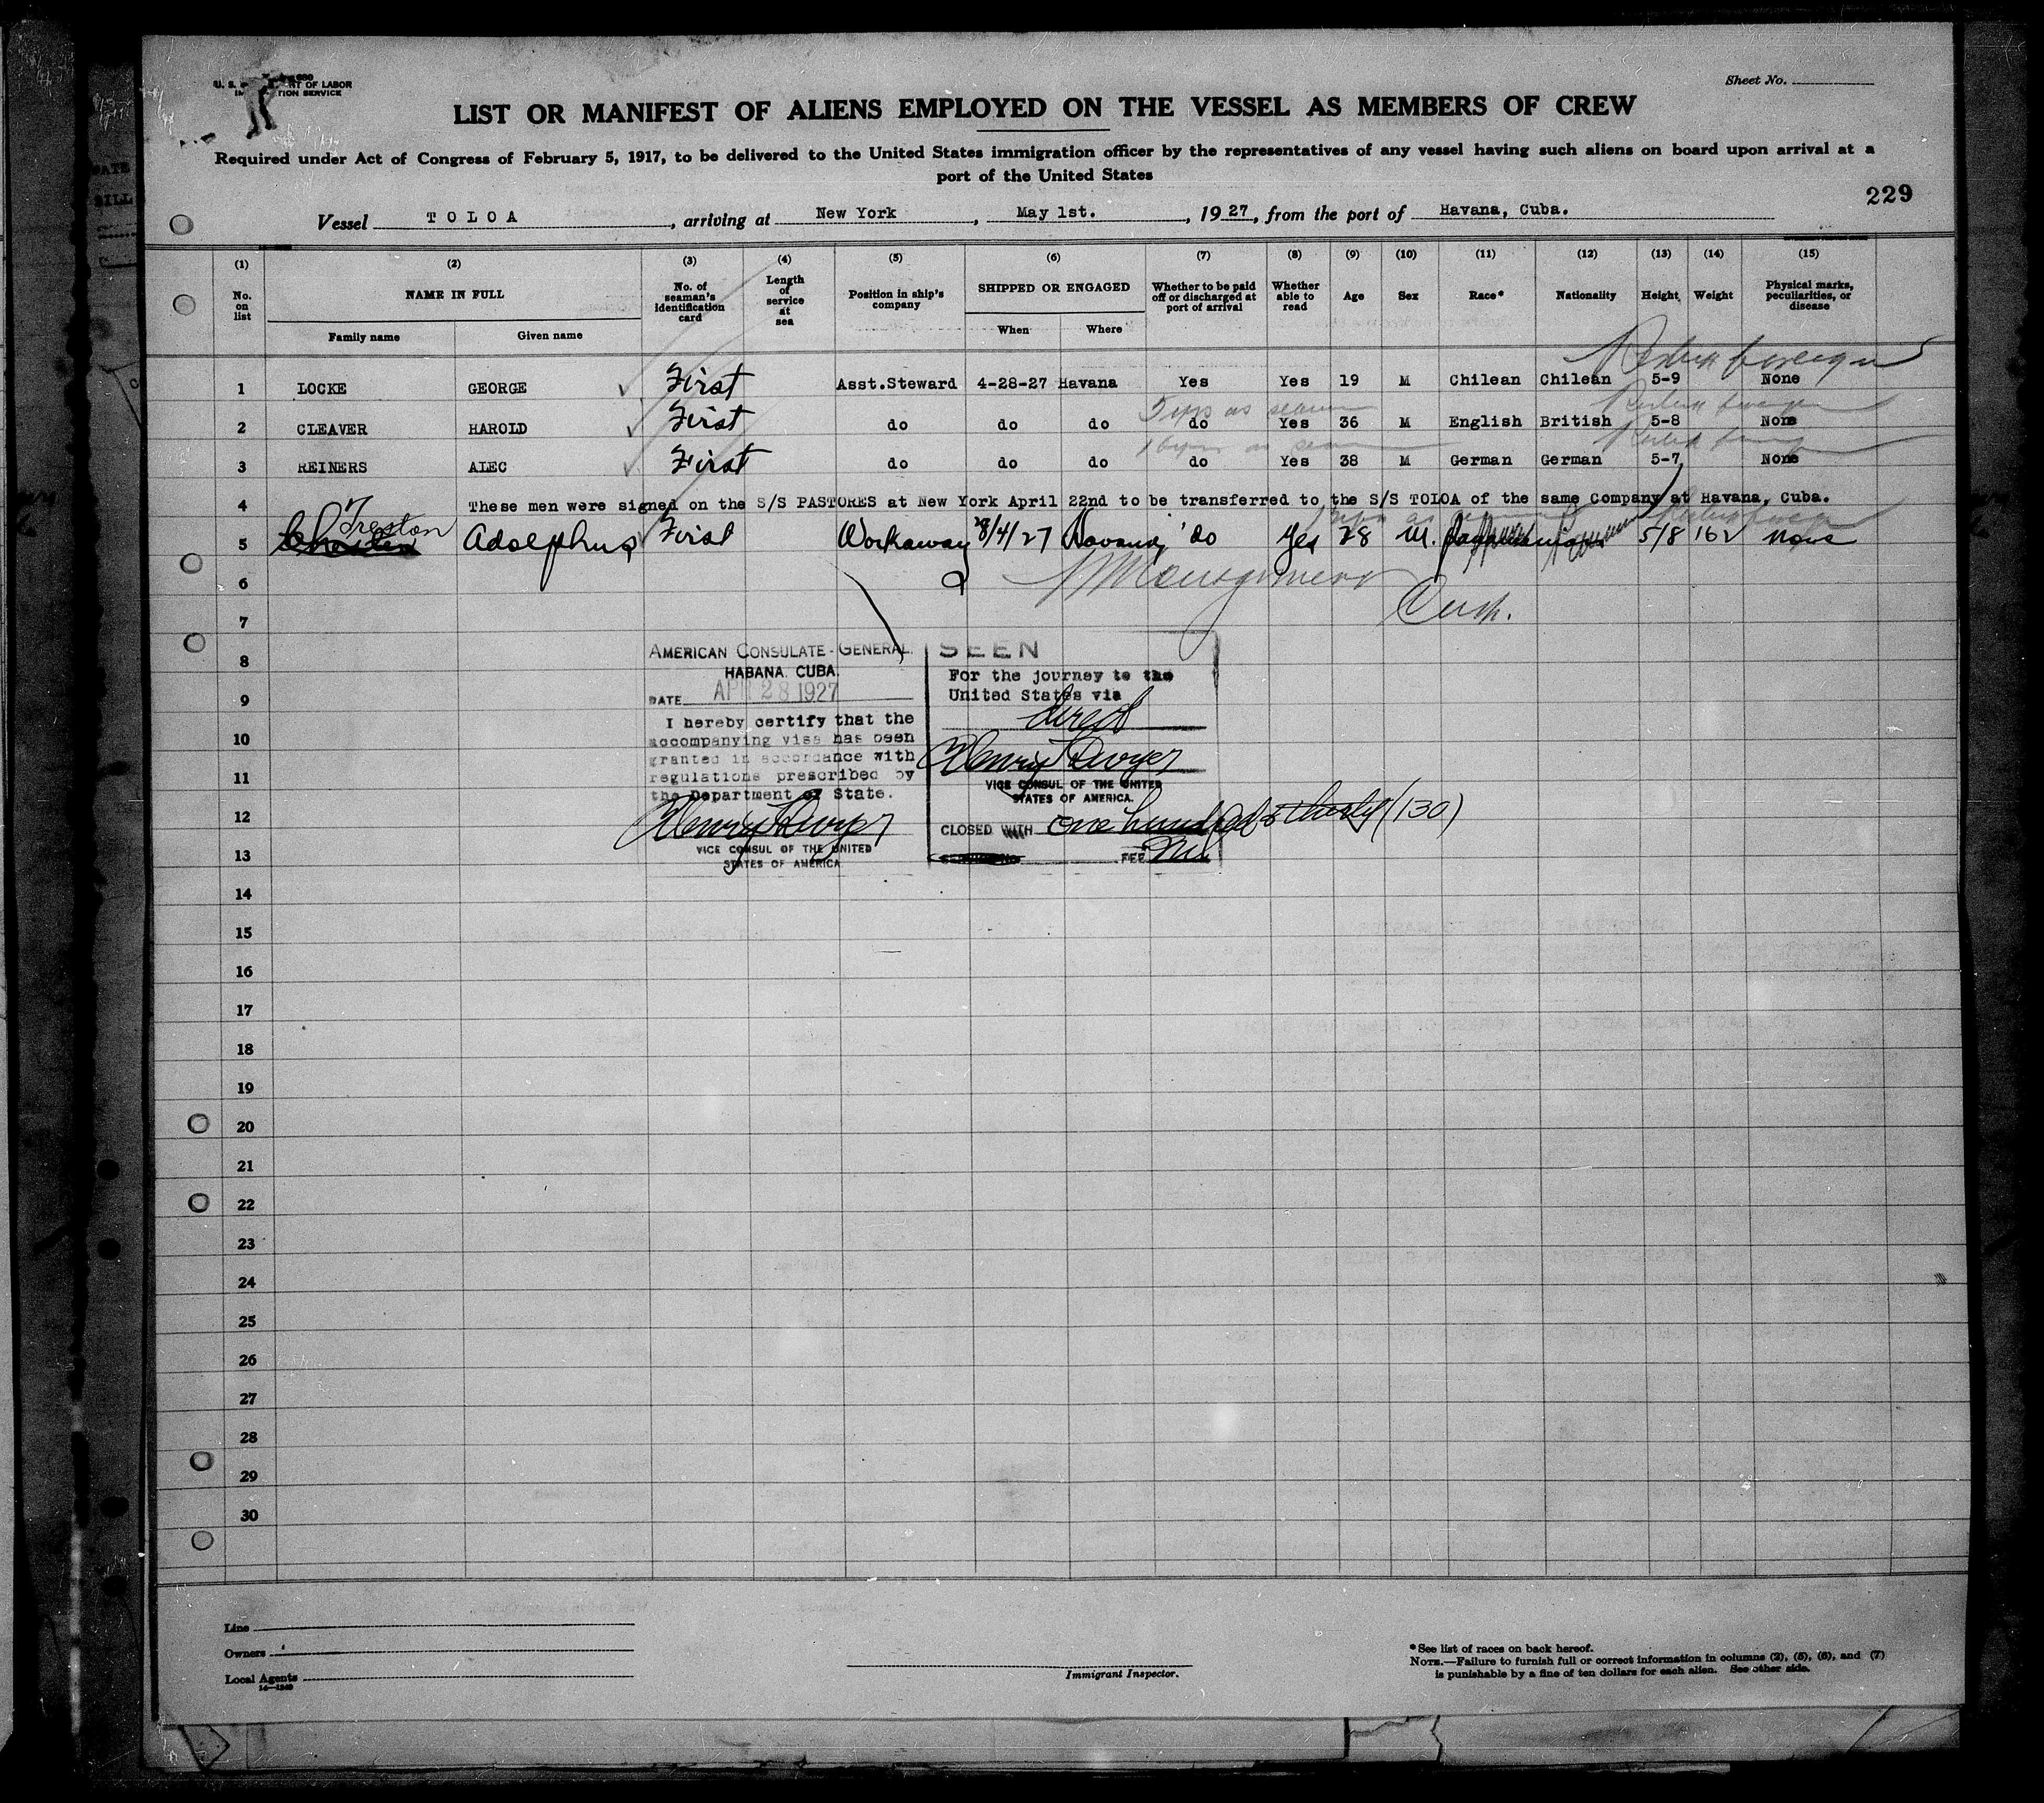 Sheet No.
U. S. NT OF LABOR
LIST OR MANIFEST OF ALIENS EMPLOYED ON THE VESSEL AS MEMBERS OF CREW
Required under Act of Congress of February 5, 1917, to be delivered to the United States immigration officer by the representatives of any vessel having such aliens on board upon arrival at a
port of the United States
229
Vessel TOLOA, arriving at New York, May 1st., 1927, from the port of Havana, Cuba.
(1) (2) (3) (4) (5) (6) (7) (8) (9) (10) (11) (12) (13) (14) (15)
No. on list NAME IN FULL No. of seaman's identification card Length of service at sea Position in ship's company SHIPPED OR ENGAGED Whether to be paid off or discharged at port of arrival Whether able to read Age Sex Race* Nationality Height Weight Physical marks, peculiarities, or disease
Family name Given name When Where
1 LOCKE GEORGE First Asst.Steward 4-28-27 Havana Yes Yes 19 M Chilean Chilean 5-9 None
5 yrs as seaman
2 CLEAVER HAROLD First do do do do Yes 36 M English British 5-8 None
3 REINERS ALEC First do do do do Yes 38 M German German 5-7 None
4 These men were signed on the S/S PASTORES at New York April 22nd to be transferred to the S/S TOLOA of the same Company at Havana, Cuba.
Treston
5 Adolphus First Workaway 28/4/27 Havana do Yes 28 M. 5/8 162 None
6
7
8 AMERICAN CONSULATE-GENERAL. SEEN
HABANA. CUBA. For the journey to the
9 DATE APR 28 1927 United States via
direct
I hereby certify that the
10 accompanying visa has been Henry Dwyer
granted in accordance with
11 regulations prescribed by VICE CONSUL OF THE UNITED
the Department of State. STATES OF AMERICA.
12 Henry Dwyer CLOSED WITH One hundred & thirty (130)
13 VICE CONSUL OF THE UNITED FEE Nil
STATES OF AMERICA
14
15
16
17
18
19
20
21
22
23
24
25
26
27
28
29
30
Line
Owners
Local Agents
Immigrant Inspector.
*See list of races on back hereof.
NOTE.—Failure to furnish full or correct information in columns (2), (5), (6), and (7)
is punishable by a fine of ten dollars for each alien. See other side.